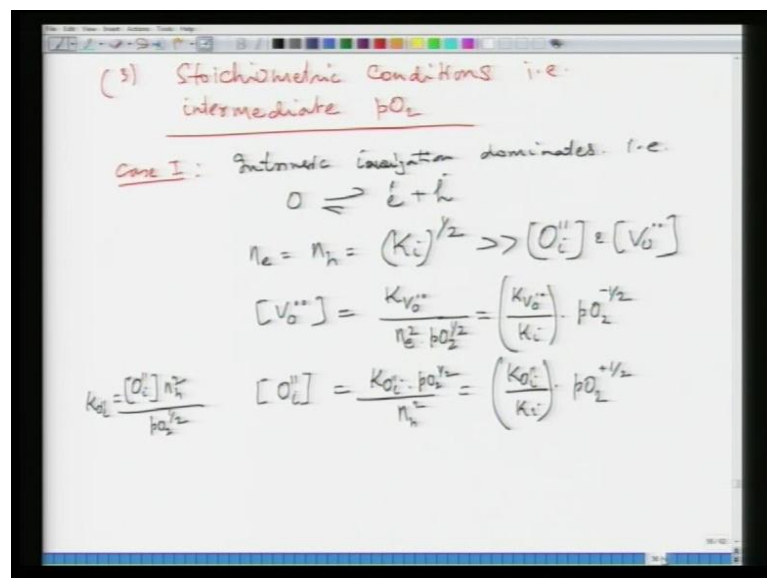 File Edit View Insert Actions Tools Help
(3) Stoichiometric Conditions i.e.
intermediate pO₂
Case I : Intrinsic ionization dominates. i.e.
O ⇌ e' + h˙
nₑ = nₕ = (Kᵢ)^1/2 >> [Oᵢ''] & [V₀˙˙]
[V₀˙˙] = K_V₀˙˙ / (nₑ² · pO₂^1/2) = (K_V₀˙˙ / Kᵢ) · pO₂^-1/2
K_Oᵢ = [Oᵢ''] nₕ² / pO₂^1/2
[Oᵢ''] = K_Oᵢ'' · pO₂^1/2 / nₕ² = (K_Oᵢ'' / Kᵢ) · pO₂^+1/2